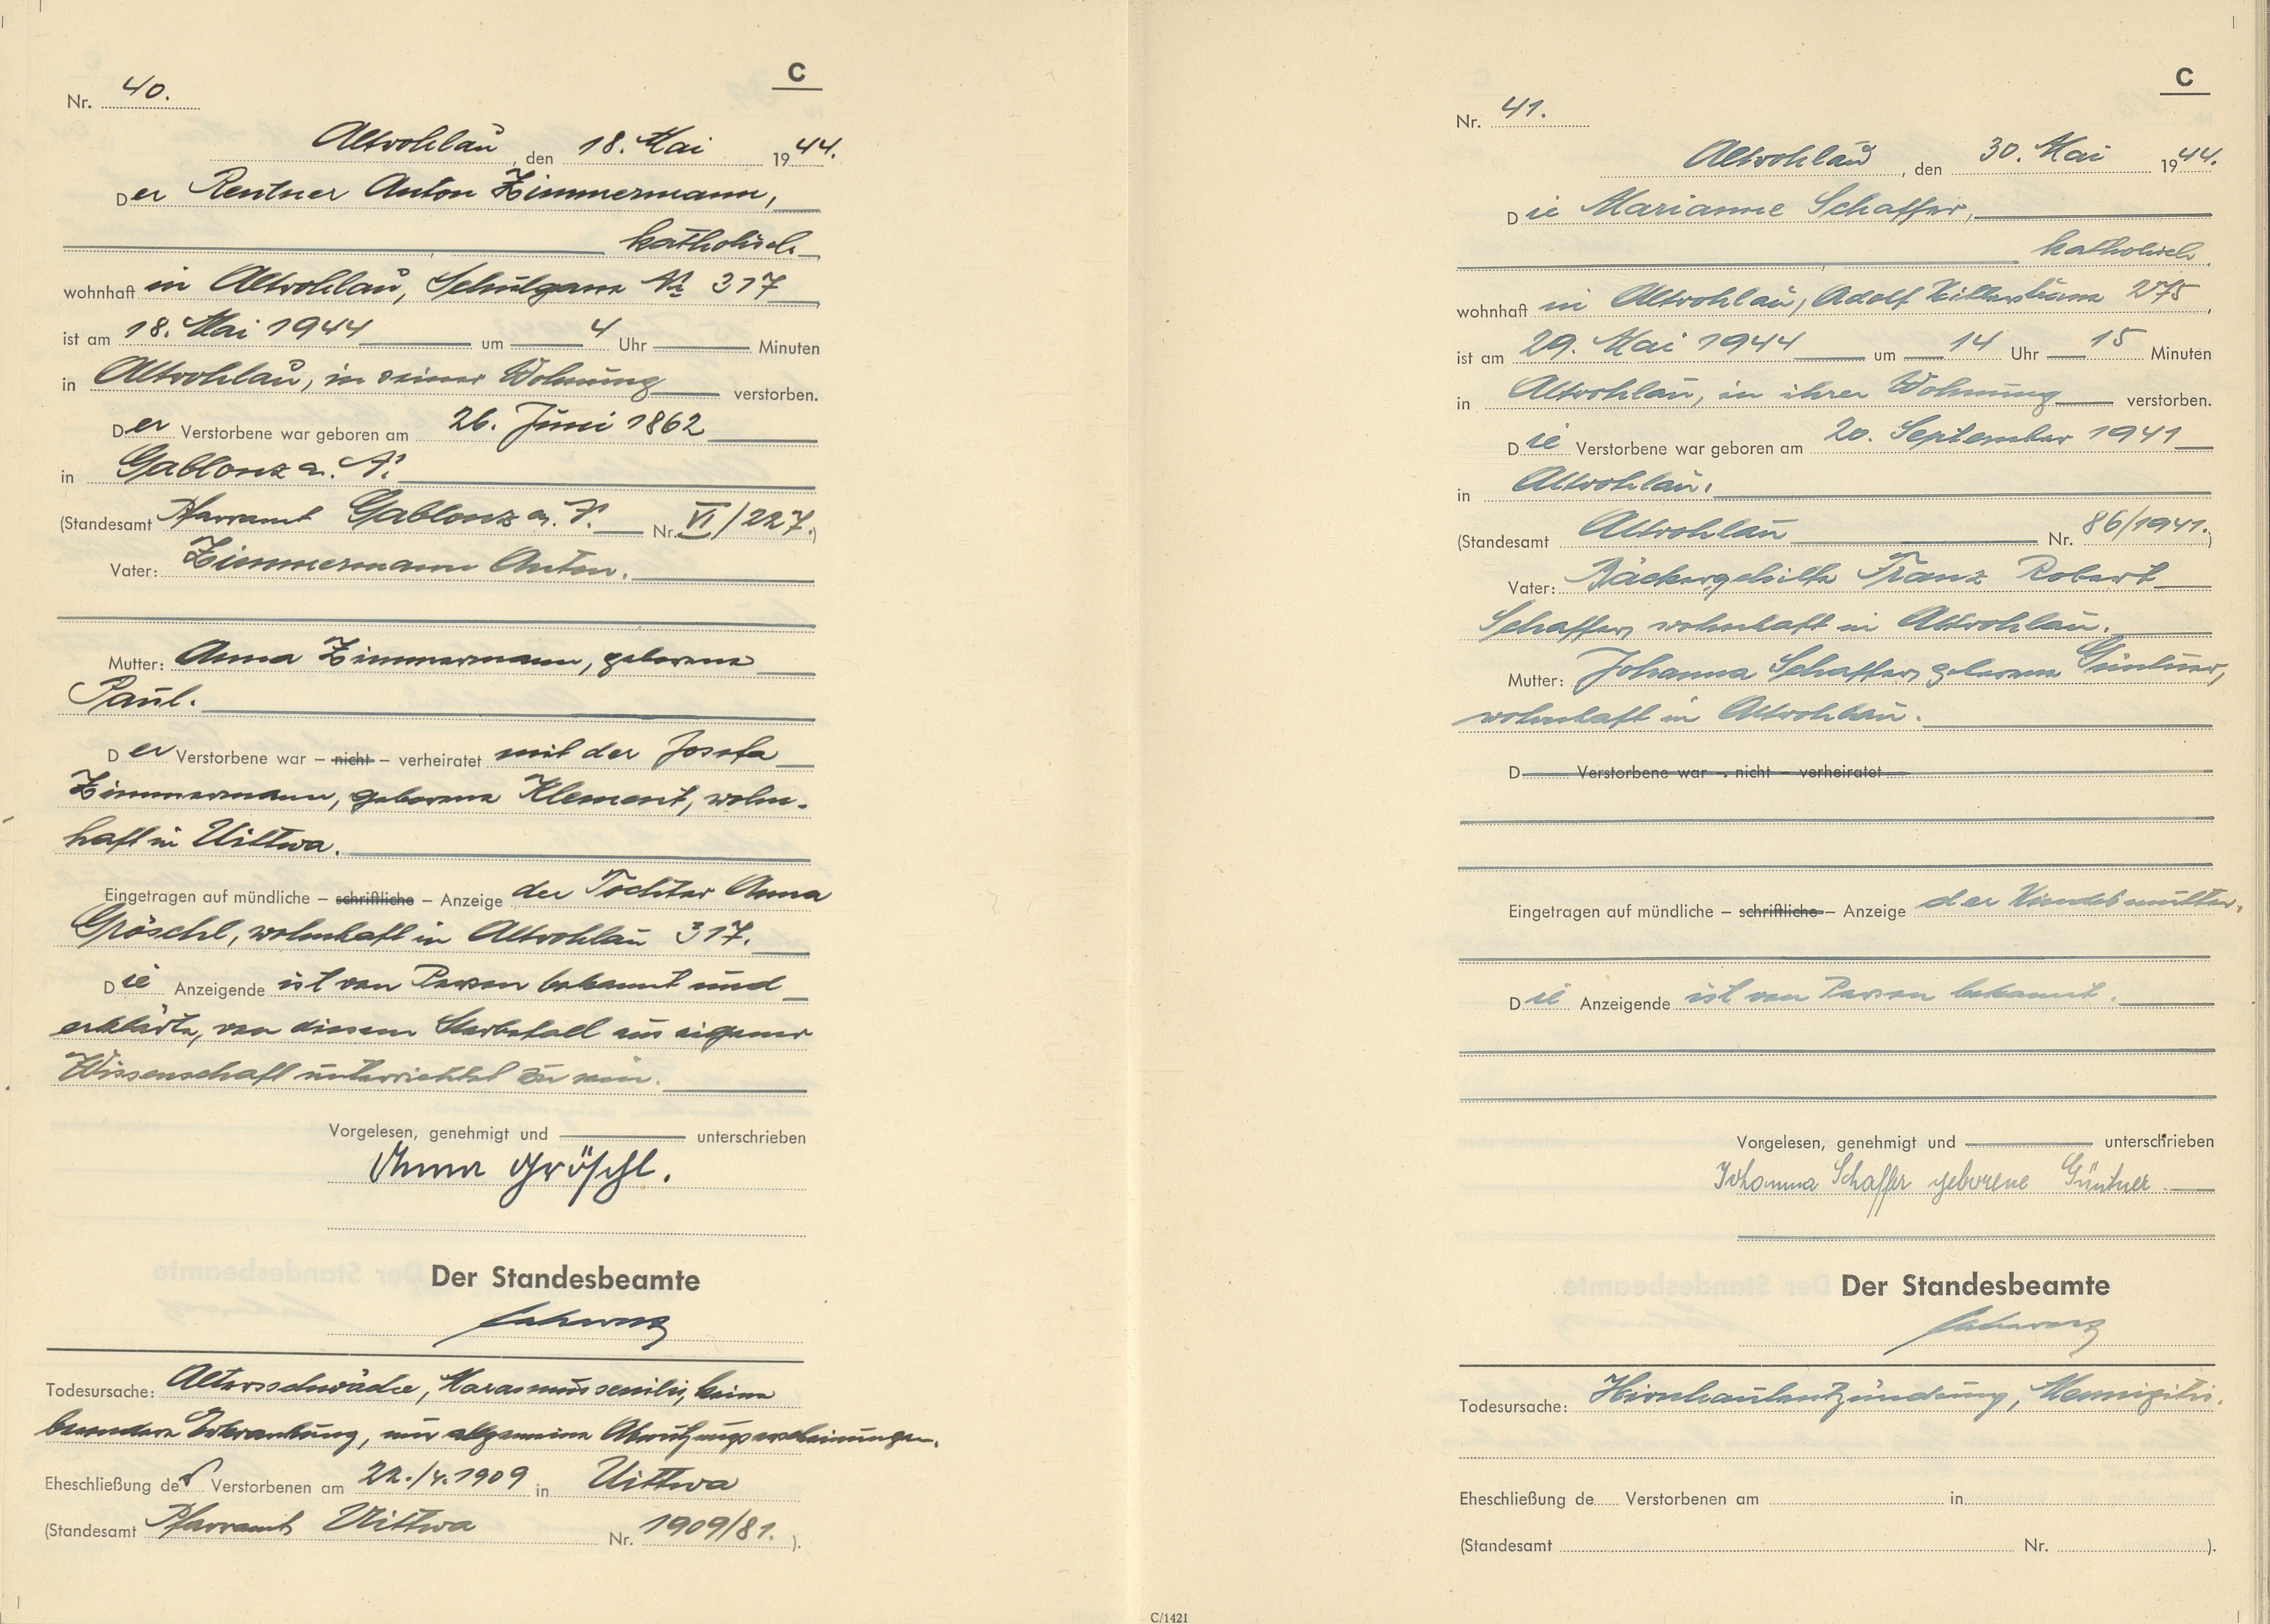 C
Nr. 40.
Altrohlau, den 18. Mai 1944.
Der Rentner Anton Zimmermann,
katholisch
wohnhaft in Altrohlau, Schulgasse № 317
ist am 18. Mai 1944 um 4 Uhr Minuten
in Altrohlau, in seiner Wohnung verstorben.
Der Verstorbene war geboren am 26. Juni 1862
in Gablonz a. N.
(Standesamt Pfarramt Gablonz a. N. Nr. VI/227.)
Vater: Zimmermann Anton.
Mutter: Anna Zimmermann, geborene
Paul.
Der Verstorbene war – nicht – verheiratet mit der Josefa
Zimmermann, geborene Klement, wohn-
haft in Uittwa.
Eingetragen auf mündliche – schriftliche – Anzeige der Tochter Anna
Gröschl, wohnhaft in Altrohlau 317.
Die Anzeigende ist von Person bekannt und
erklärte, von diesem Sterbefall aus eigener
Wissenschaft unterrichtet zu sein.
Vorgelesen, genehmigt und unterschrieben
Anna Gröschl.
Der Standesbeamte
Schwarz
Todesursache: Altersschwäche, Marasmus senilis, keine
besondere Erkrankung, nur allgemeine Abnützungserscheinungen.
Eheschließung der Verstorbenen am 22./4.1909 in Uittwa
(Standesamt Pfarramt Uittwa Nr. 1909/81. ).
C
Nr. 41.
Altrohlau, den 30. Mai 1944.
Die Marianne Schaffer,
katholisch
wohnhaft in Altrohlau, Adolf Hitlerstrasse 275,
ist am 29. Mai 1944 um 14 Uhr 15 Minuten
in Altrohlau, in ihrer Wohnung verstorben.
Die Verstorbene war geboren am 20. September 1941
in Altrohlau.
(Standesamt Altrohlau Nr. 86/1941.)
Vater: Bäckergehilfe Franz Robert
Schaffer, wohnhaft in Altrohlau.
Mutter: Johanna Schaffer, geborene Güntner,
wohnhaft in Altrohlau.
D Verstorbene war – nicht – verheiratet
Eingetragen auf mündliche – schriftliche – Anzeige der Kindesmutter.
Die Anzeigende ist von Person bekannt.
Vorgelesen, genehmigt und unterschrieben
Johanna Schaffer geborene Güntner
Der Standesbeamte
Schwarz
Todesursache: Hirnhautentzündung, Mennigitis.
Eheschließung de Verstorbenen am in
(Standesamt Nr. ).
C/1421